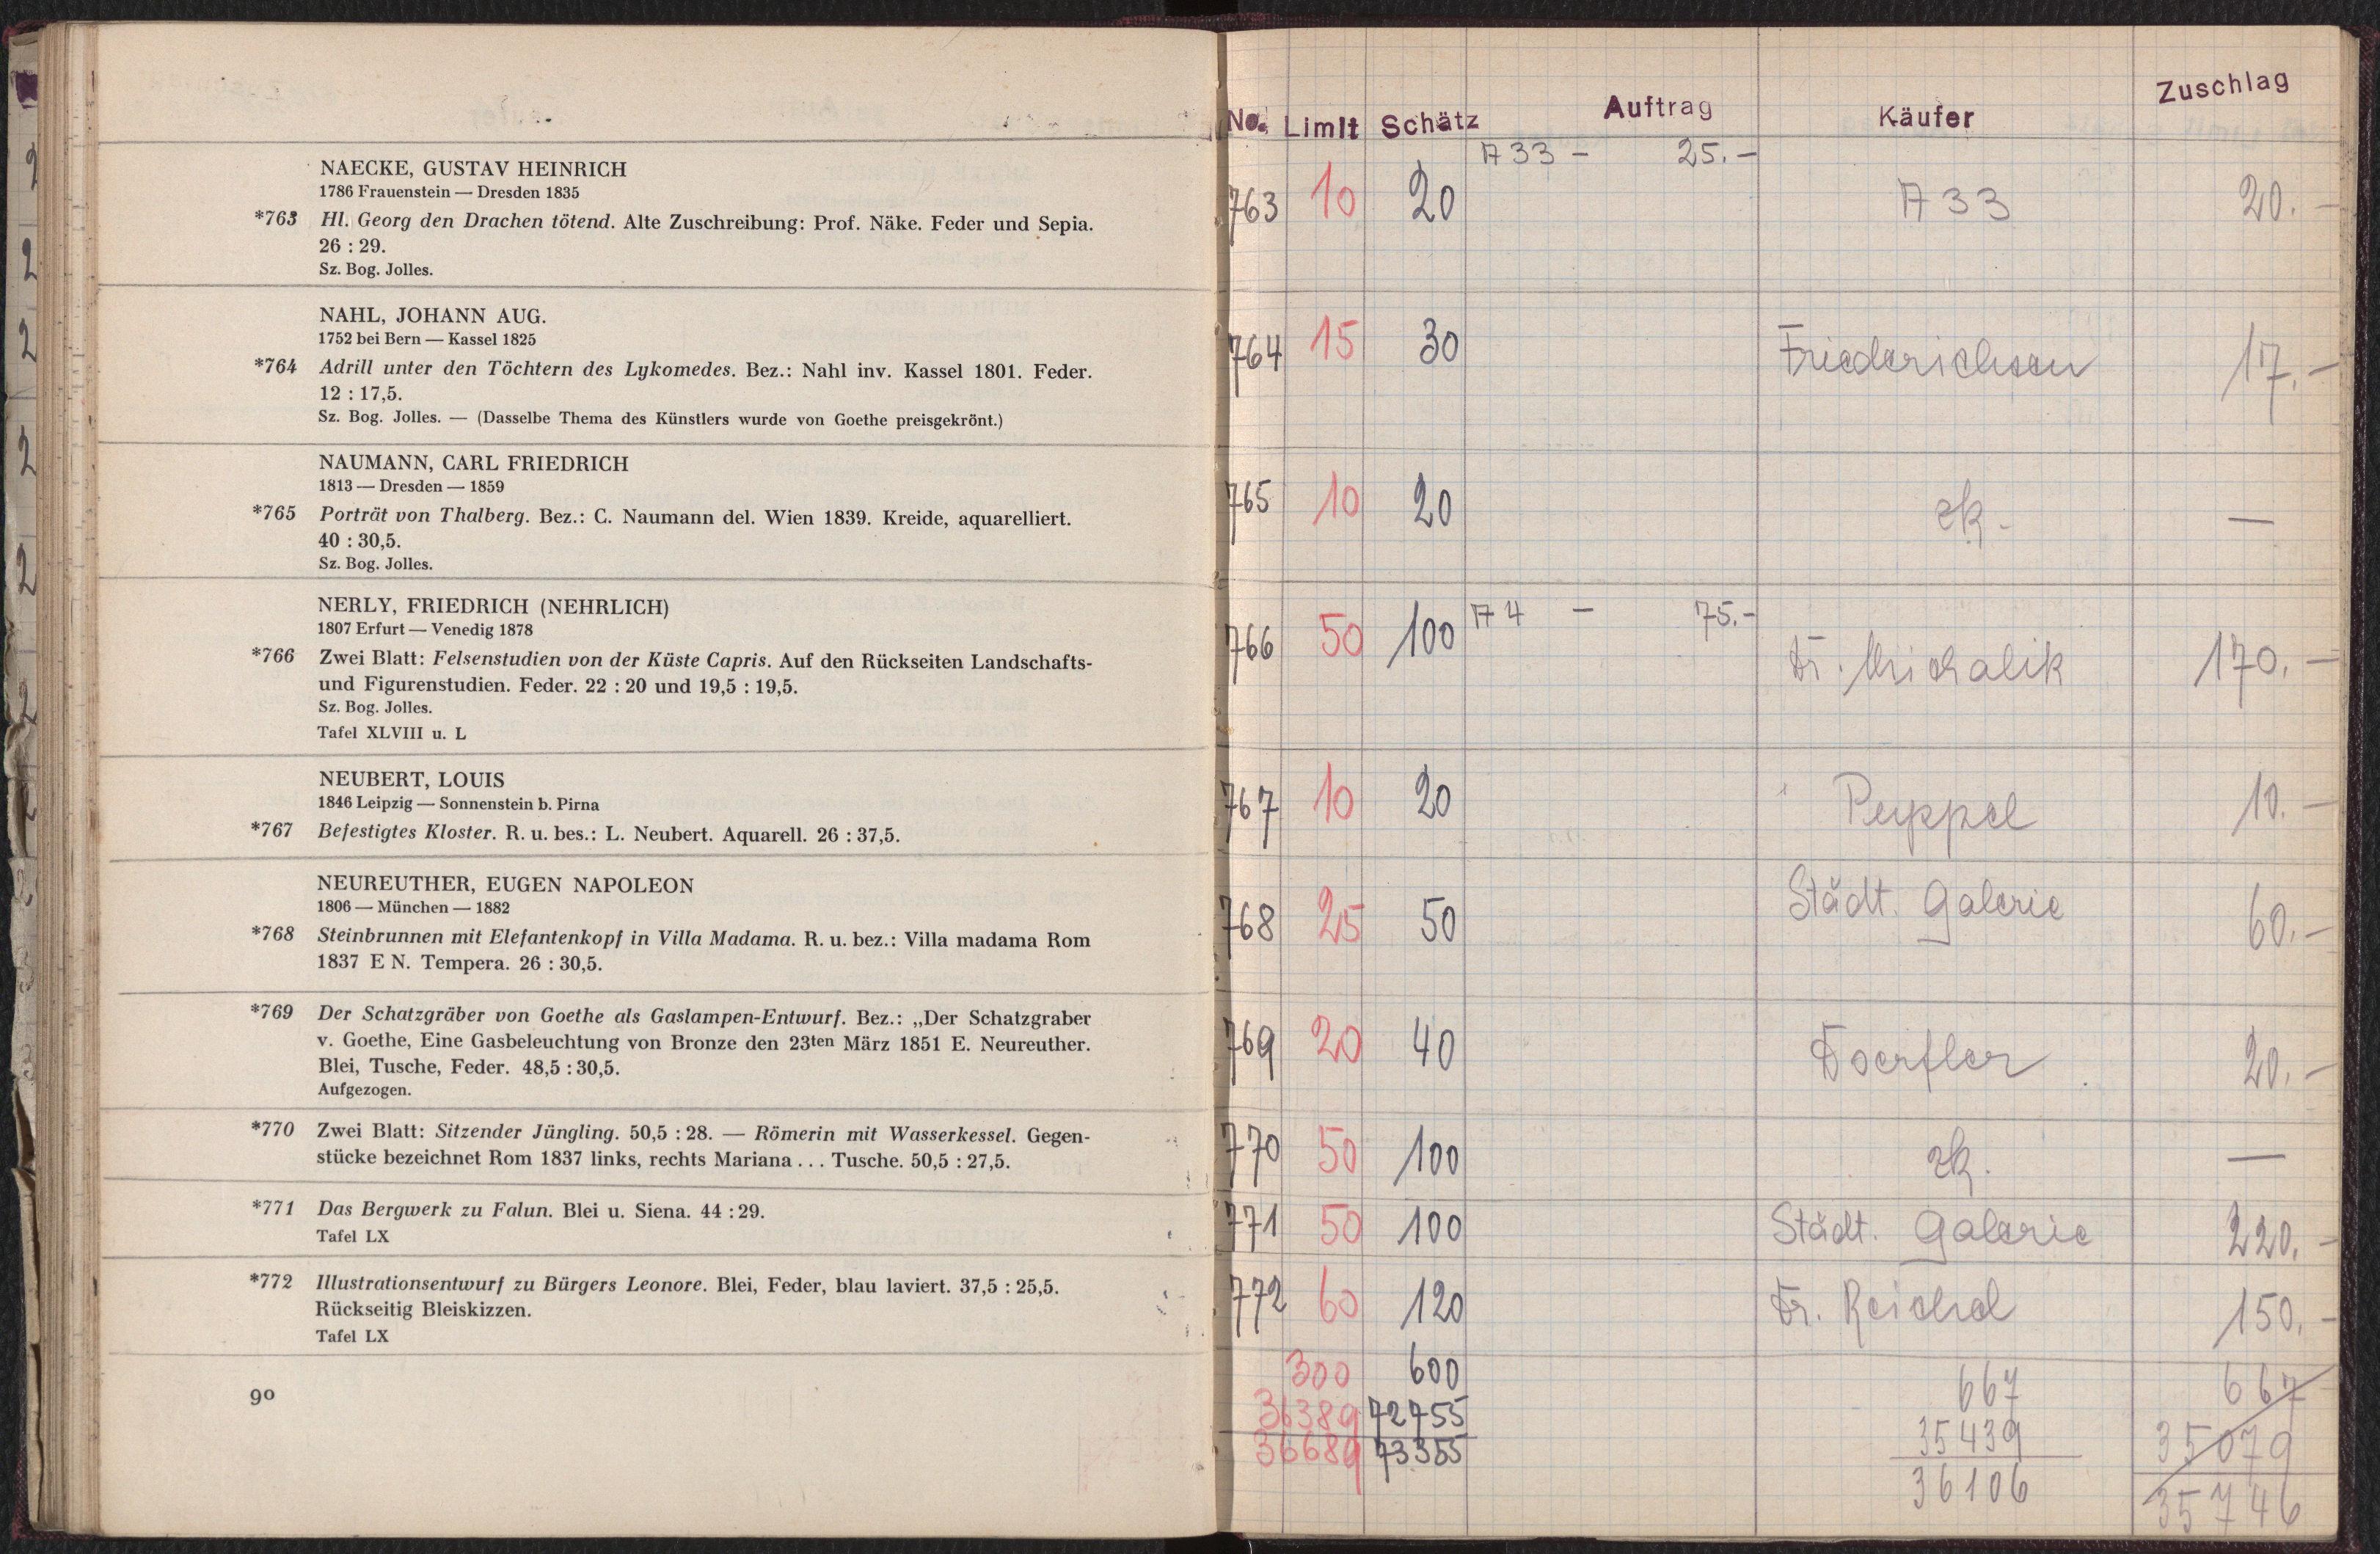 NAECKE, GUSTAV HEINRICH
1786 Frauenstein — Dresden 1835
*763 Hl. Georg den Drachen tötend. Alte Zuschreibung: Prof. Näke. Feder und Sepia.
26 : 29.
Sz. Bog. Jolles.
NAHL, JOHANN AUG.
1752 bei Bern — Kassel 1825
*764 Adrill unter den Töchtern des Lykomedes. Bez.: Nahl inv. Kassel 1801. Feder.
12 : 17,5.
Sz. Bog. Jolles. — (Dasselbe Thema des Künstlers wurde von Goethe preisgekrönt.)
NAUMANN, CARL FRIEDRICH
1813 — Dresden — 1859
*765 Porträt von Thalberg. Bez.: C. Naumann del. Wien 1839. Kreide, aquarelliert.
40 : 30,5.
Sz. Bog. Jolles.
NERLY, FRIEDRICH (NEHRLICH)
1807 Erfurt — Venedig 1878
*766 Zwei Blatt: Felsenstudien von der Küste Capris. Auf den Rückseiten Landschafts-
und Figurenstudien. Feder. 22 : 20 und 19,5 : 19,5.
Sz. Bog. Jolles.
Tafel XLVIII u. L
NEUBERT, LOUIS
1846 Leipzig — Sonnenstein b. Pirna
*767 Befestigtes Kloster. R. u. bes.: L. Neubert. Aquarell. 26 : 37,5.
NEUREUTHER, EUGEN NAPOLEON
1806 — München — 1882
*768 Steinbrunnen mit Elefantenkopf in Villa Madama. R. u. bez.: Villa madama Rom
1837 E N. Tempera. 26 : 30,5.
*769 Der Schatzgräber von Goethe als Gaslampen-Entwurf. Bez.: „Der Schatzgraber
v. Goethe, Eine Gasbeleuchtung von Bronze den 23ten März 1851 E. Neureuther.
Blei, Tusche, Feder. 48,5 : 30,5.
Aufgezogen.
*770 Zwei Blatt: Sitzender Jüngling. 50,5 : 28. — Römerin mit Wasserkessel. Gegen-
stücke bezeichnet Rom 1837 links, rechts Mariana . . . Tusche. 50,5 : 27,5.
*771 Das Bergwerk zu Falun. Blei u. Siena. 44 : 29.
Tafel LX
*772 Illustrationsentwurf zu Bürgers Leonore. Blei, Feder, blau laviert. 37,5 : 25,5.
Rückseitig Bleiskizzen.
Tafel LX
90
No. Limit Schätz Auftrag Käufer Zuschlag
A 33 - 25.-
763 10 20 A 33 20.-
764 15 30 Friederichsen 17.-
765 10 20 zk. —
A 4 - 75.-
766 50 100 Dr. Michalik 170.-
767 10 20 Puppel 10.-
768 25 50 Städt. Galerie 60.-
769 20 40 Doerfler 20.-
770 50 100 zk. —
771 50 100 Städt. Galerie 220.-
772 60 120 Dr. Reichel 150.-
300 600 667 667
36389 72755 35439 35079
36689 73355 36106 35746